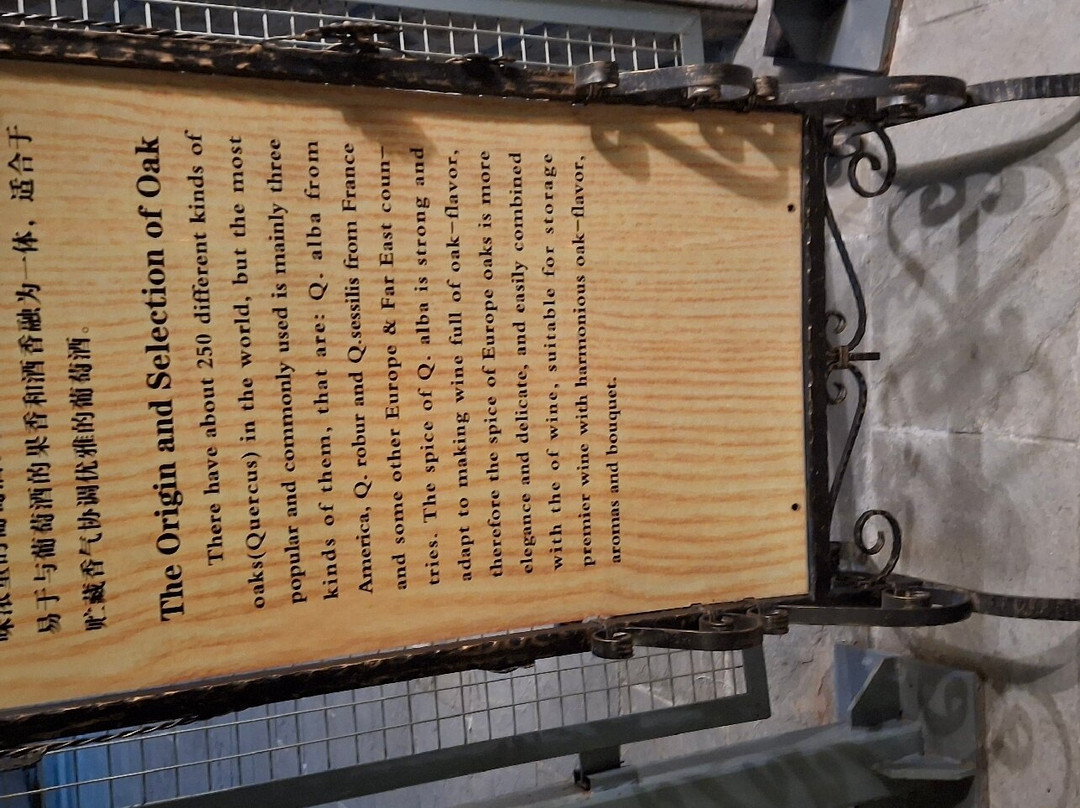 易于与葡萄酒的果香和酒香融为一体，适合于
贮藏香气协调优雅的葡萄酒。
The Origin and Selection of Oak
There have about 250 different kinds of
oaks(Quercus) in the world, but the most
popular and commonly used is mainly three
kinds of them, that are: Q. alba from
America, Q. robur and Q.sessilis from France
and some other Europe & Far East coun-
tries. The spice of Q. alba is strong and
adapt to making wine full of oak-flavor,
therefore the spice of Europe oaks is more
elegance and delicate, and easily combined
with the of wine, suitable for storage
premier wine with harmonious oak-flavor,
aromas and bouquet.